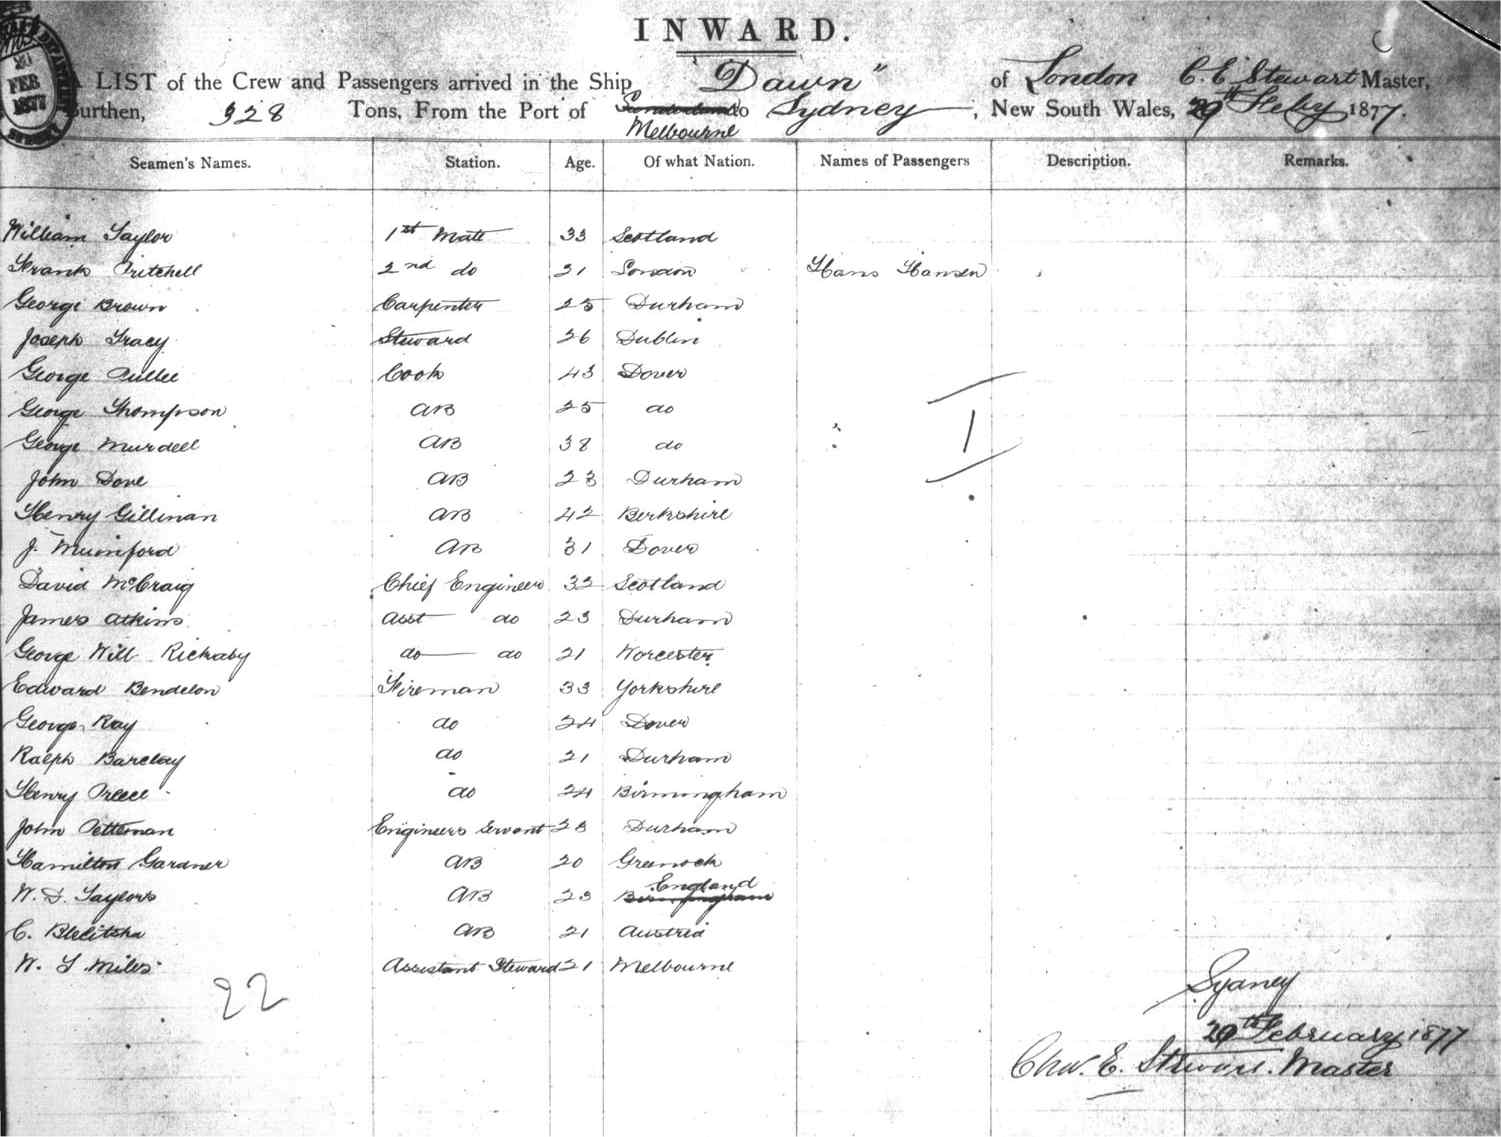 INWARD.
FEB
1877
A LIST of the Crew and Passengers arrived in the Ship "Dawn" of London C. E. Stewart Master,
Burthen, 328 Tons, From the Port of to Sydney, New South Wales, 20th Feby 1877.
Melbourne
Seamen's Names. Station. Age. Of what Nation. Names of Passengers Description. Remarks.
William Taylor 1st Mate 33 Scotland
Frank Pritchell 2nd do 31 London Hans Hansen
George Brown Carpenter 25 Durham
Joseph Tracy Steward 26 Dublin
George Pullee Cook 43 Dover
George Thompson AB 25 do
George Murdell AB 38 do
John Dove AB 23 Durham
Henry Gillman AB 42 Berkshire
J. Mumford AB 31 Dover
David McCraig Chief Engineer 33 Scotland
James Atkins Asst do 23 Durham
George Will Rickaby do do 21 Worcester
Edward Bendelon Fireman 33 Yorkshire
George Ray do 24 Dover
Ralph Barclay do 21 Durham
Henry Preece do 24 Birmingham
John Petteman Engineers Servant 28 Durham
Hamilton Gardner AB 20 Greenock
W. D. Taylors AB 23 Birmingham England
C. Blelitsha AB 21 Austria
W. T. Miles Assistant Steward 21 Melbourne
1
22
Sydney
20th February 1877
Chas. E. Stewart. Master